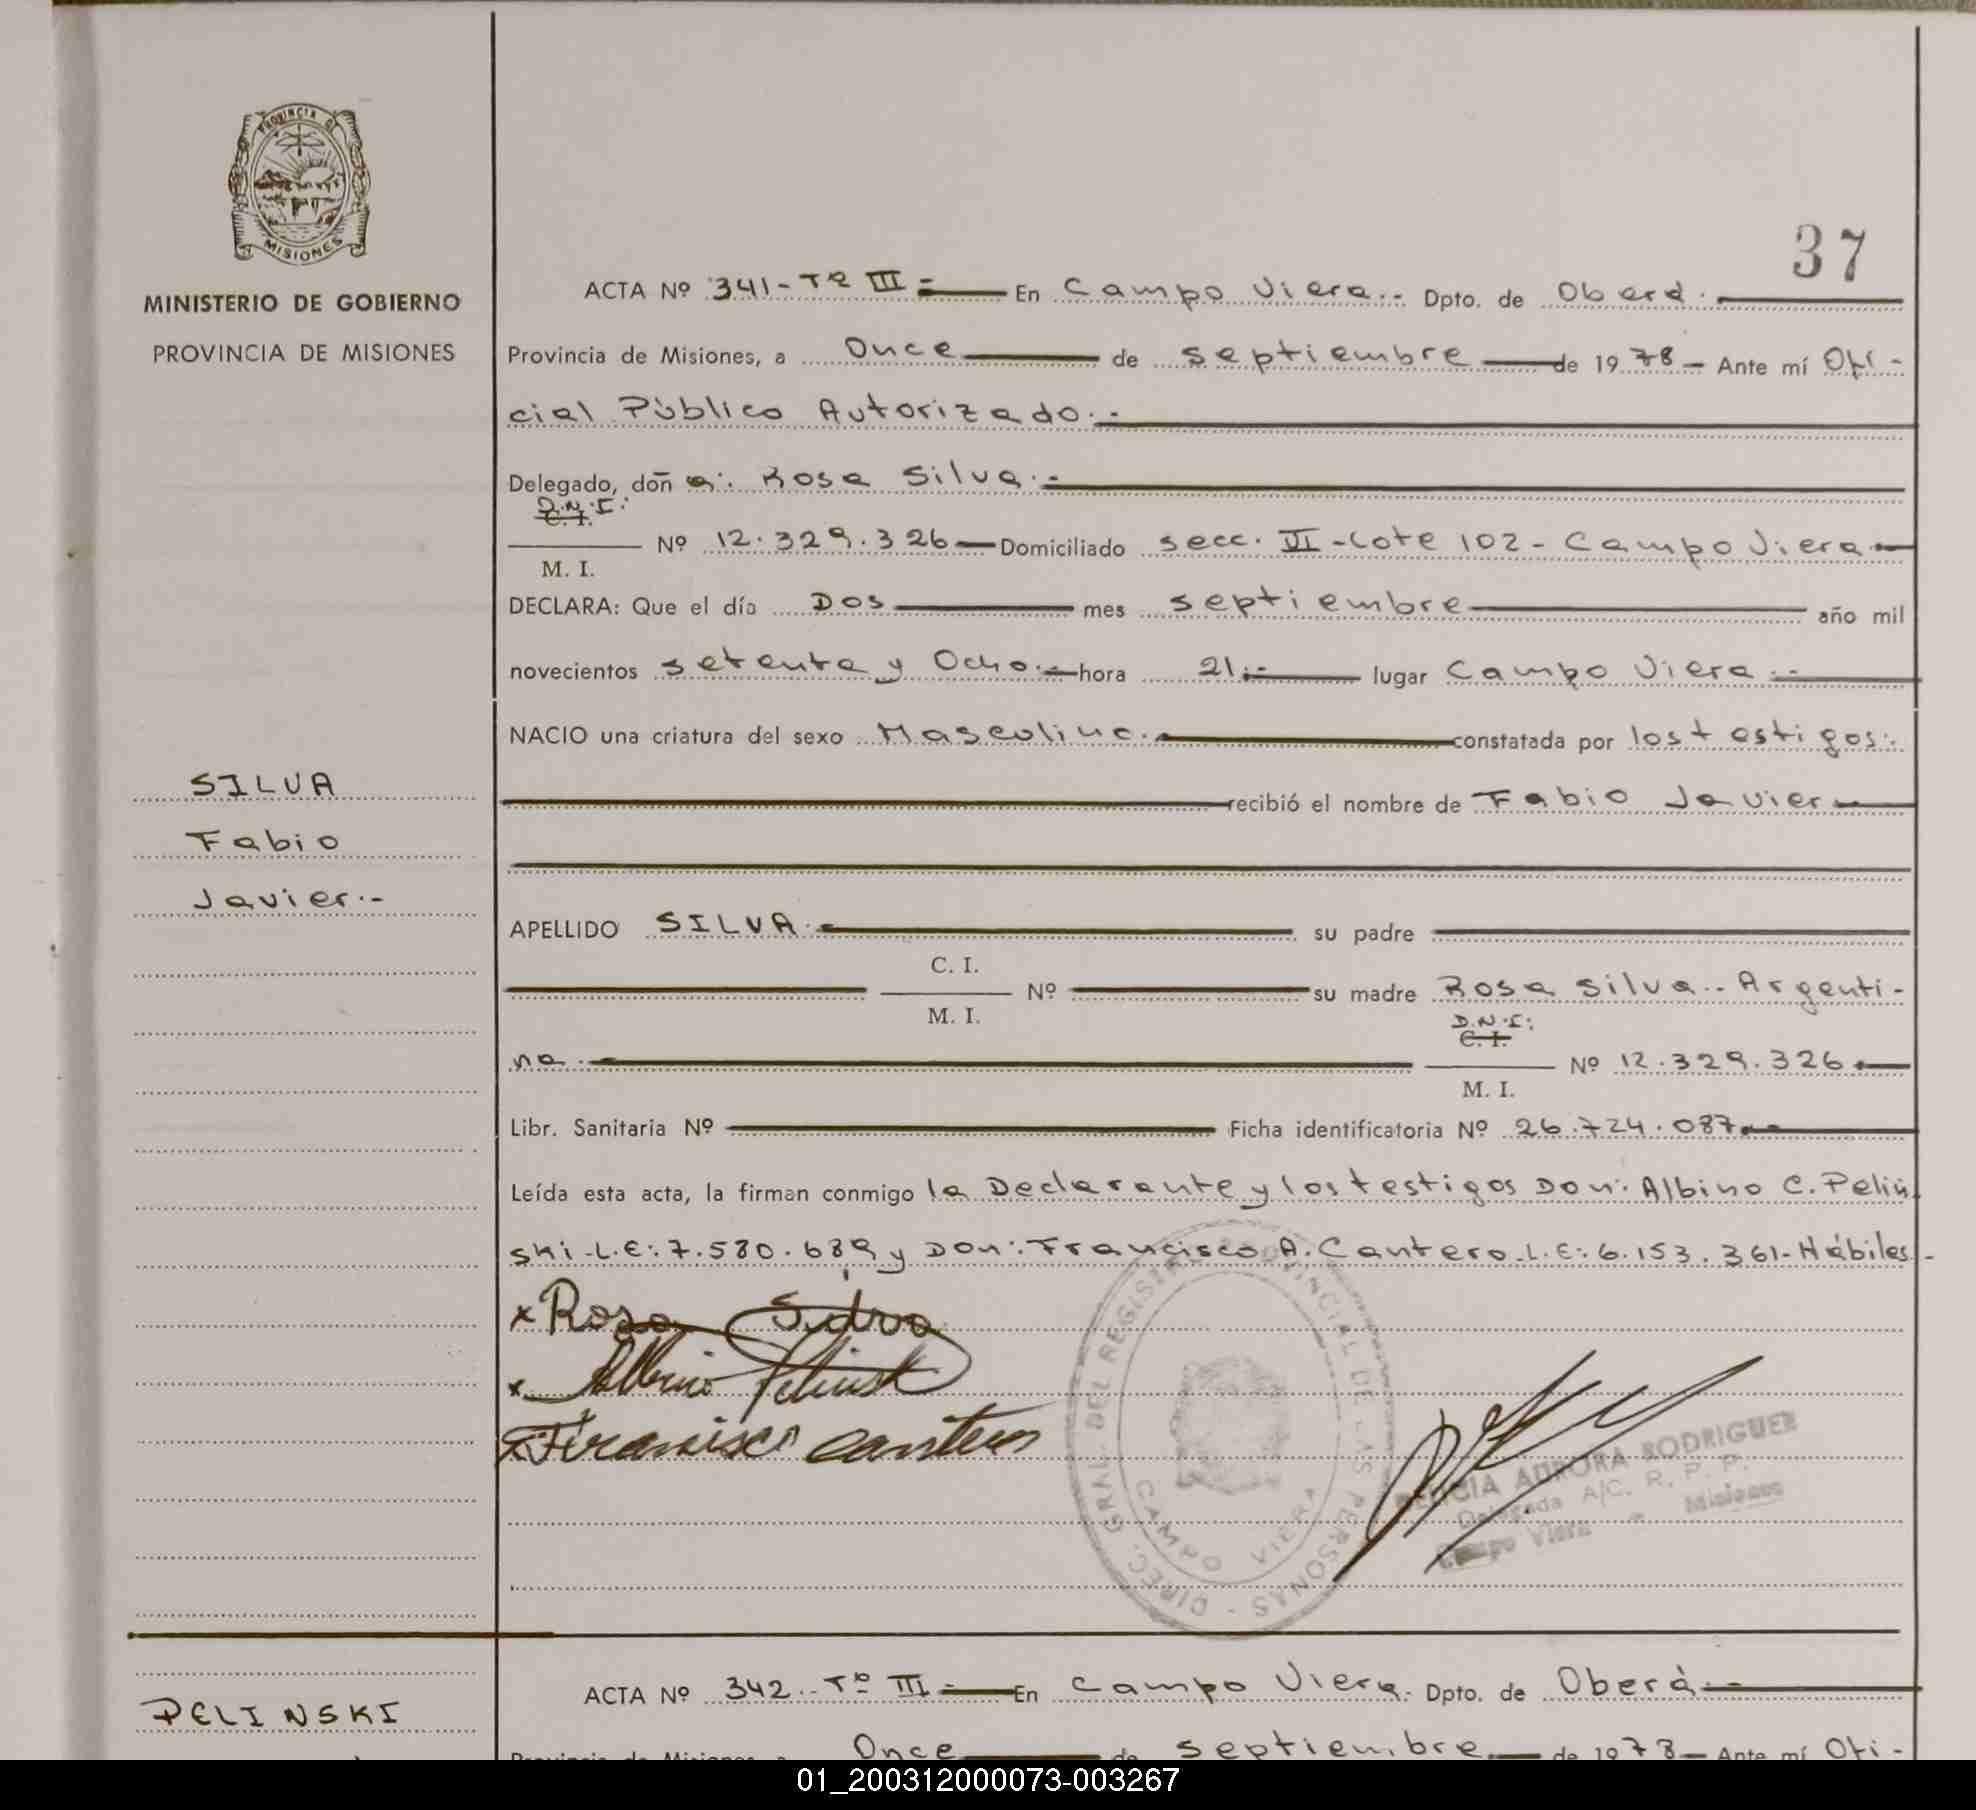 PROVINCIA DE
MISIONES
MINISTERIO DE GOBIERNO
PROVINCIA DE MISIONES
37
ACTA Nº 341-Tº III - En Campo Viera.- Dpto. de Oberá.
Provincia de Misiones, a Once de septiembre de 1978- Ante mí Ofi-
cial Público Autorizado.-
Delegado, doña: Rosa Silva.-
D.N.I:
C. I.
Nº 12.329.326 Domiciliado secc. VI-Lote 102- Campo Viera
M. I.
DECLARA: Que el día Dos mes septiembre año mil
novecientos setenta y Ocho.- hora 21.- lugar Campo Viera.-
NACIO una criatura del sexo Masculino.- constatada por los testigos.
recibió el nombre de Fabio Javier
SILVA
Fabio
Javier.-
APELLIDO SILVA.- su padre
C. I.
Nº su madre Rosa Silva.. Argenti-
M. I.
D.N.I:
C. I.
na.- Nº 12.329.326
M. I.
Libr. Sanitaria Nº Ficha identificatoria Nº 26.724.087.-
Leída esta acta, la firman conmigo la Declarante y los testigos Don: Albino C. Pelin
ski-L.E:7.580.689 y Don: Francisco A. Cantero-L.E:6.153.361-Hábiles-
x Rosa Silva
x Albino Pelinski
x Francisco Cantero
DIREC. GRAL. DEL REGISTRO PROVINCIAL DE LAS PERSONAS -
CAMPO VIERA
AURORA RODRIGUEZ
Delegada A/C. R. P. P.
Campo Viera - Misiones
ACTA Nº 342.-Tº III- En Campo Viera. Dpto. de Oberá.-
PELINSKI
Provincia de Misiones, a Once de septiembre de 1978- Ante mí Ofi-
01_200312000073-003267